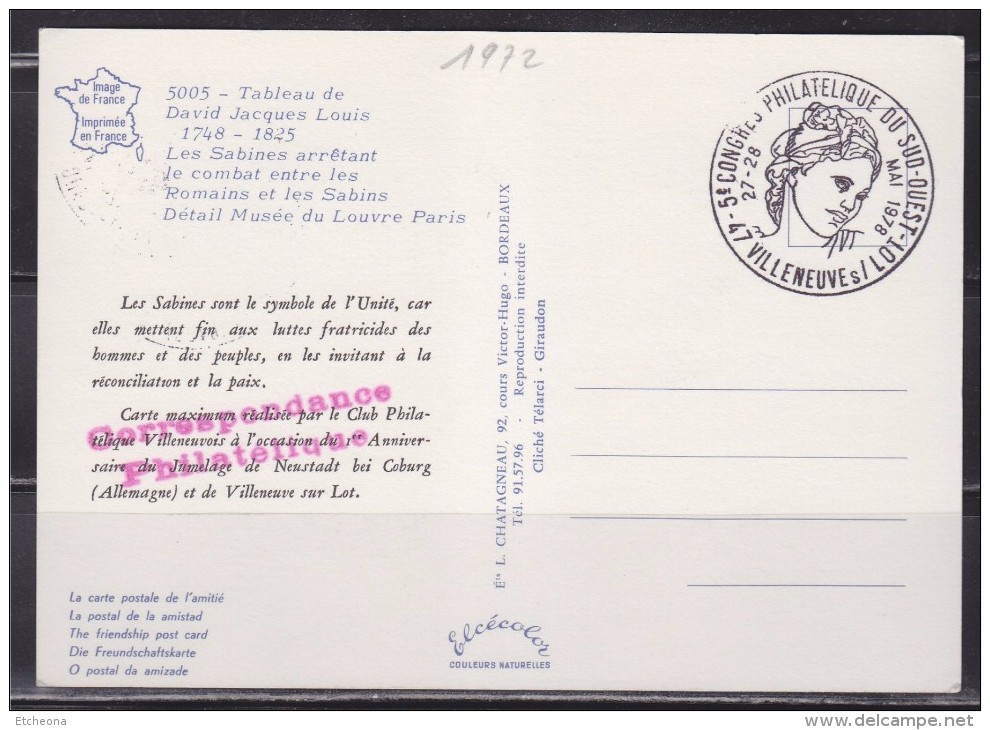 1972
Image
de France
Imprimée
en France
5005 - Tableau de
David Jacques Louis
1748 - 1825
Les Sabines arrêtant
le combat entre les
Romains et les Sabins
Détail Musée du Louvre Paris
5e CONGRES PHILATELIQUE DU SUD-OUEST-LOT-
27-28 MAI 1978
47 VILLENEUVE s/
Les Sabines sont le symbole de l'Unité, car
elles mettent fin aux luttes fratricides des
hommes et des peuples, en les invitant à la
réconciliation et la paix.
Carte maximum réalisée par le Club Phila-
télique Villeneuvois à l'occasion du 1er Anniver-
saire du Jumelage de Neustadt bei Coburg
(Allemagne) et de Villeneuve sur Lot.
Correspondance
Philatelique
Éts L. CHATAGNEAU, 92, cours Victor-Hugo - BORDEAUX
Tél. 91.57.96 - Reproduction interdite
Cliché Télarci - Giraudon
La carte postale de l'amitié
La postal de la amistad
The friendship post card
Die Freundschaftskarte
O postal da amizade
Elcécolor
COULEURS NATURELLES
Etcheona
www.delcampe.net